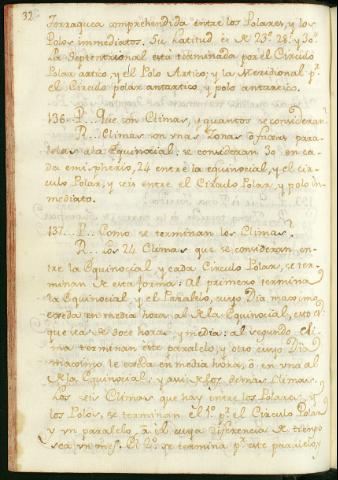 32
Torraquea comprehendida entre los Polares, y los
Polos immediatos. Su latitud es de 23°. 28'. y 30".
La Septentrional esta terminada por el Circulo
Polar artico, y el Polo Artico; y la Meridional pr.
el Circulo polar antartico, y polo antartico.
136. P... Que son Climas, y quantos se consideran?
R... Climas son unas Zonas, ò faxas para-
lelas ala Equinocial: se consideran 30 en ca-
da emispherio, 24 entre la equinocial, y el cir-
culo Polar, y seis entre el Circulo Polar, y polo in-
mediato.
137... P... Como se terminan los Climas?
R... Los 24 Climas que se consideran, en-
tre la Equinocial y cada Circulo Polar, se ter-
minan de esta forma: Al primero termina
la Equinocial, y el Paralelo, cuyo Dia maximo
exceda en media hora al de la Equinocial, esto és:
que sea de doce horas y media: al segundo Cli-
ma terminan este paralelo, y otro cuyo Dia
maximo le exceda en media hora, ò en una al
de la Equinocial; y asi de los demas Climas.
Los seis Climas que hay entre los Polares, y
los Polos, se terminan el 1°. pr. el Circulo Polar
y un paralelo, à el cuya diferencia de tiempo
sea un mes. El 2°. se termina pr. este paralelo, y